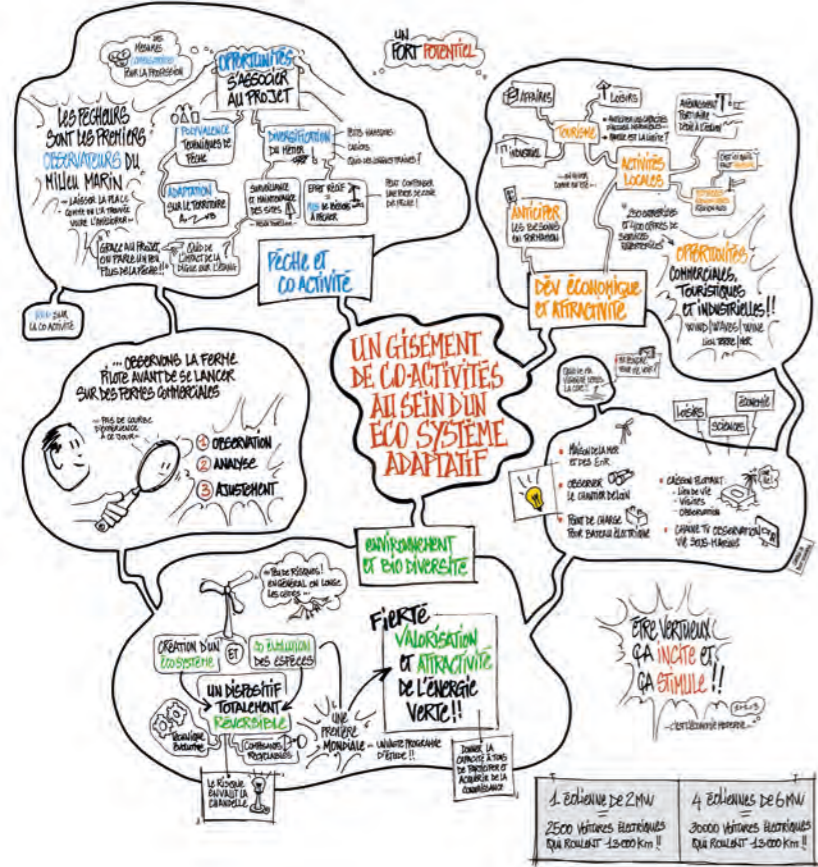 DES
MESURES
POUR LA PROFESSION
OPPORTUNITÉS
S'ASSOCIER
AU PROJET
UN
FORT POTENTIEL
LES PÊCHEURS
SONT LES PREMIERS
OBSERVATEURS DU
MILIEU MARIN
- LAISSER LA PLACE
COMME ON L'A TROUVÉE
VOIRE L'AMÉLIORER -
POLYVALENCE
TECHNIQUES DE
PÊCHE
ADAPTATION
SUR LE TERRITOIRE
DIVERSIFICATION
DU MÉTIER
PETITS HAMEÇONS
CASIERS
QUID DES LIGNES TRAINES ?
SURVEILLANCE
ET MAINTENANCE
DES SITES
EFFET RÉCIF
=
PLUS DE
À PÊCHER
PEUT COMPENSER
UNE PERTE DE ZONE
DE PÊCHE !
GRÂCE AU PROJET,
ON PARLE UN PEU
PLUS DE LA PÊCHE !!
QUID DE
L'IMPACT DE LA
DIGUE SUR L'ÉTANG
?
PÊCHE ET
CO ACTIVITÉ
SUR
LA CO ACTIVITÉ
AFFAIRES
LOISIRS
TOURISME
INDUSTRIEL
QUELLE EST LA LIMITE ?
AMÉNAGEMENT
PORTUAIRE
DÉDIÉ À L'ÉOLIEN
ACTIVITÉS
LOCALES
ANTICIPER
LES BESOINS
EN FORMATION
250 ENTREPRISES
ET 400 OFFRES DE
SERVICES
IDENTIFIÉES
OPPORTUNITÉS
COMMERCIALES,
TOURISTIQUES
ET INDUSTRIELLES !!
WIND/WAVES/WINE
LIEN TERRE/MER
DÉV ÉCONOMIQUE
ET ATTRACTIVITÉ
... OBSERVONS LA FERME
PILOTE AVANT DE SE LANCER
SUR DES FERMES COMMERCIALES
- PAS DE COURBE
D'EXPÉRIENCE
À CE JOUR -
1 OBSERVATION
2 ANALYSE
3 AJUSTEMENT
UN GISEMENT
DE CO-ACTIVITÉS
AU SEIN D'UN
ECO SYSTÈME
ADAPTATIF
LOISIRS
SCIENCES
ÉCONOMIE
MAISON DE LA MER
ET DES EnR
OBSERVER
LE CHANTIER DE LOIN
POINT DE CHARGE
POUR BATEAU ÉLECTRIQUE
CAISSON FLOTTANT :
- LIEU DE VIE
- VISITES
- OBSERVATION
CHAINE TV OBSERVATION
VIE SOUS-MARINE
ENVIRONNEMENT
ET BIO DIVERSITÉ
- PEU DE RISQUES !
EN GÉNÉRAL ON LONGE
LES CÔTES -
CRÉATION D'UN
ÉCOSYSTÈME
ET
CO ÉVOLUTION
DES ESPÈCES
UN DISPOSITIF
TOTALEMENT
RÉVERSIBLE
TECHNIQUE
ÉVOLUTIVE
COMPOSANTS
RECYCLABLES
LE RISQUE
EN VAUT LA
CHANDELLE
UNE
PREMIÈRE
MONDIALE
- UN VASTE PROGRAMME
D'ÉTUDE !!
FIERTÉ
VALORISATION
ET ATTRACTIVITÉ
DE L'ÉNERGIE
VERTE !!
DONNER LA
CAPACITÉ À TOUS
DE PARTICIPER ET
ACQUÉRIR DE LA
CONNAISSANCE
ÊTRE VERTUEUX
ÇA INCITE ET
ÇA STIMULE !!
- C'EST L'ÉCONOMIE MODERNE -
1 ÉOLIENNE DE 2MW
=
2500 VOITURES ÉLECTRIQUES
QUI ROULENT 13000 Km !!
4 ÉOLIENNES DE 6 MW
=
30000 VOITURES ÉLECTRIQUES
QUI ROULENT 13000 Km !!